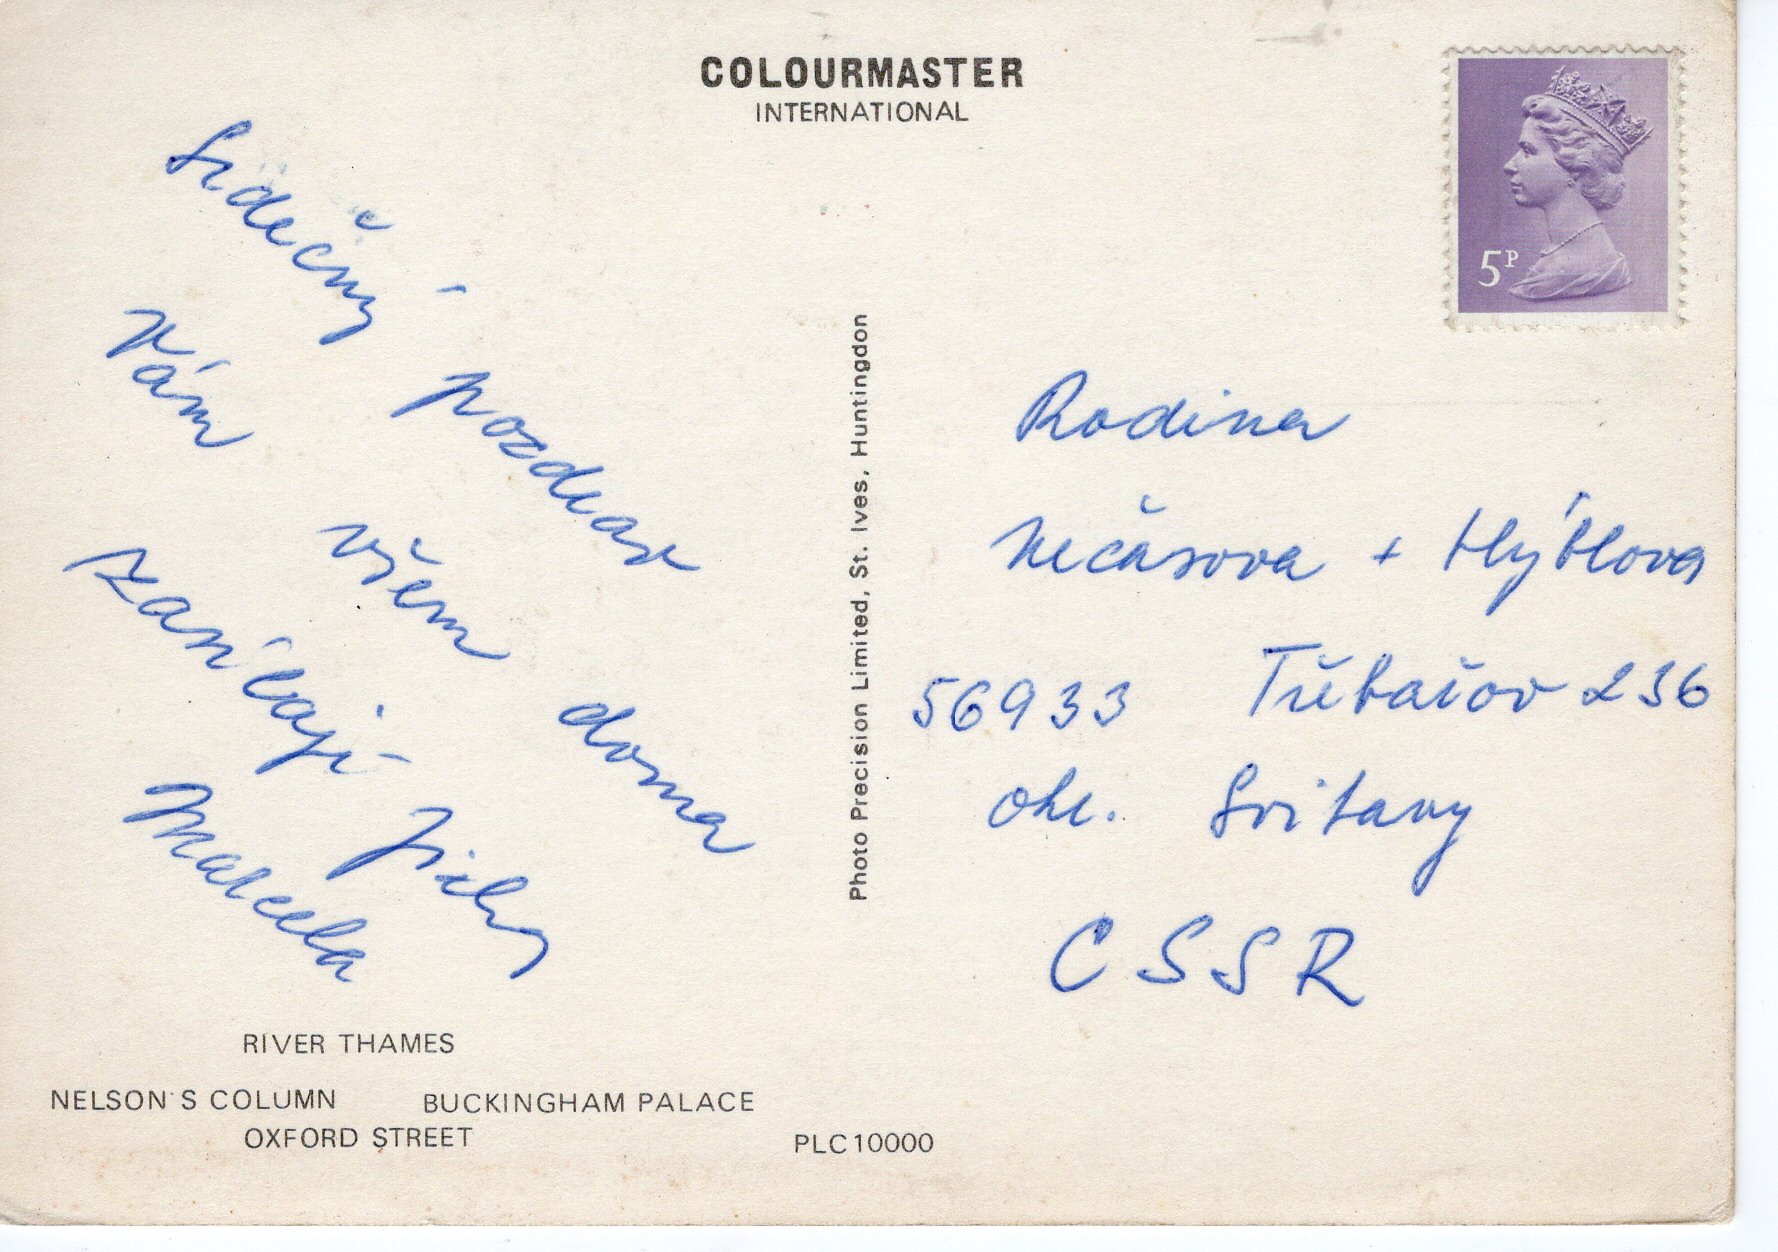 COLOURMASTER
INTERNATIONAL
Srdečný pozdrav
Vám všem doma
zasílají Jirka
Marcela
RIVER THAMES
NELSON'S COLUMN BUCKINGHAM PALACE
OXFORD STREET
PLC10000
Photo Precision Limited, St. Ives, Huntingdon
5P
Rodina
Nečasova + Hýblova
56933 Třebařov 236
okr. Svitavy
CSSR